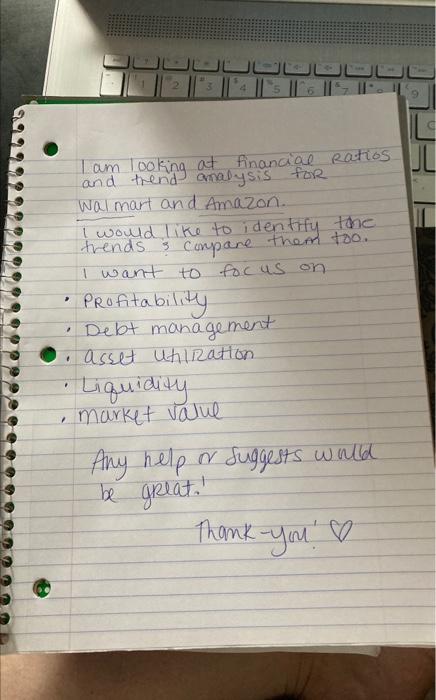 I am looking at financial Ratios
and trend analysis for
Walmart and Amazon.
I would like to identify the
trends & compare them too.
I want to focus on
• Profitability
• Debt management
• asset utilization
• Liquidity
• market value
Any help or suggests would
be great!
Thank-you! ♡